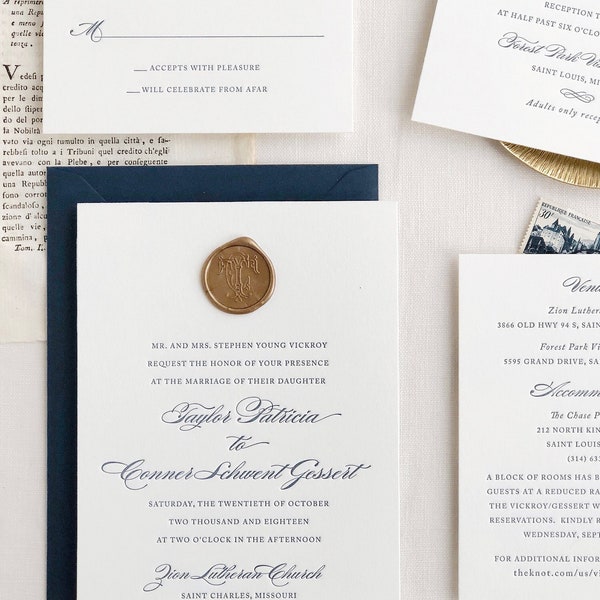 a reprimer
e meno f
quelle vie
tenza.
M
ACCEPTS WITH PLEASURE
WILL CELEBRATE FROM AFAR
RECEPTION T
AT HALF PAST SIX O'CLO
Forest Park Vis
SAINT LOUIS, M
Adults only recep
Vedesi p
dello
dello stiper
del po
la Nobiltà
vato via ogni tumulto in quella città, e sa-
rebbesi tolto a i Tribuni quel credito ch'egli
avevano con la Plebe, e per conseguente
quella autor
una Repub
sono
scandaloso,
zione d'al
quelle vie,
cammina, p
Tom. I.
REPUBLIQUE FRANÇAISE
30
MR. AND MRS. STEPHEN YOUNG VICKROY
REQUEST THE HONOR OF YOUR PRESENCE
AT THE MARRIAGE OF THEIR DAUGHTER
Taylor Patricia
to
Conner Schwent Gessert
SATURDAY, THE TWENTIETH OF OCTOBER
TWO THOUSAND AND EIGHTEEN
AT TWO O'CLOCK IN THE AFTERNOON
Zion Lutheran Church
SAINT CHARLES, MISSOURI
Venu
Zion Luthera
3866 OLD HWY 94 S, SAIN
Forest Park Vi
5595 GRAND DRIVE, SA
Accomm
The Chase P
212 NORTH KIN
SAINT LOUIS
(314) 633
A BLOCK OF ROOMS HAS B
GUESTS AT A REDUCED RA
THE VICKROY/GESSERT W
RESERVATIONS. KINDLY R
WEDNESDAY, SEPT
FOR ADDITIONAL INFOR
theknot.com/us/vi